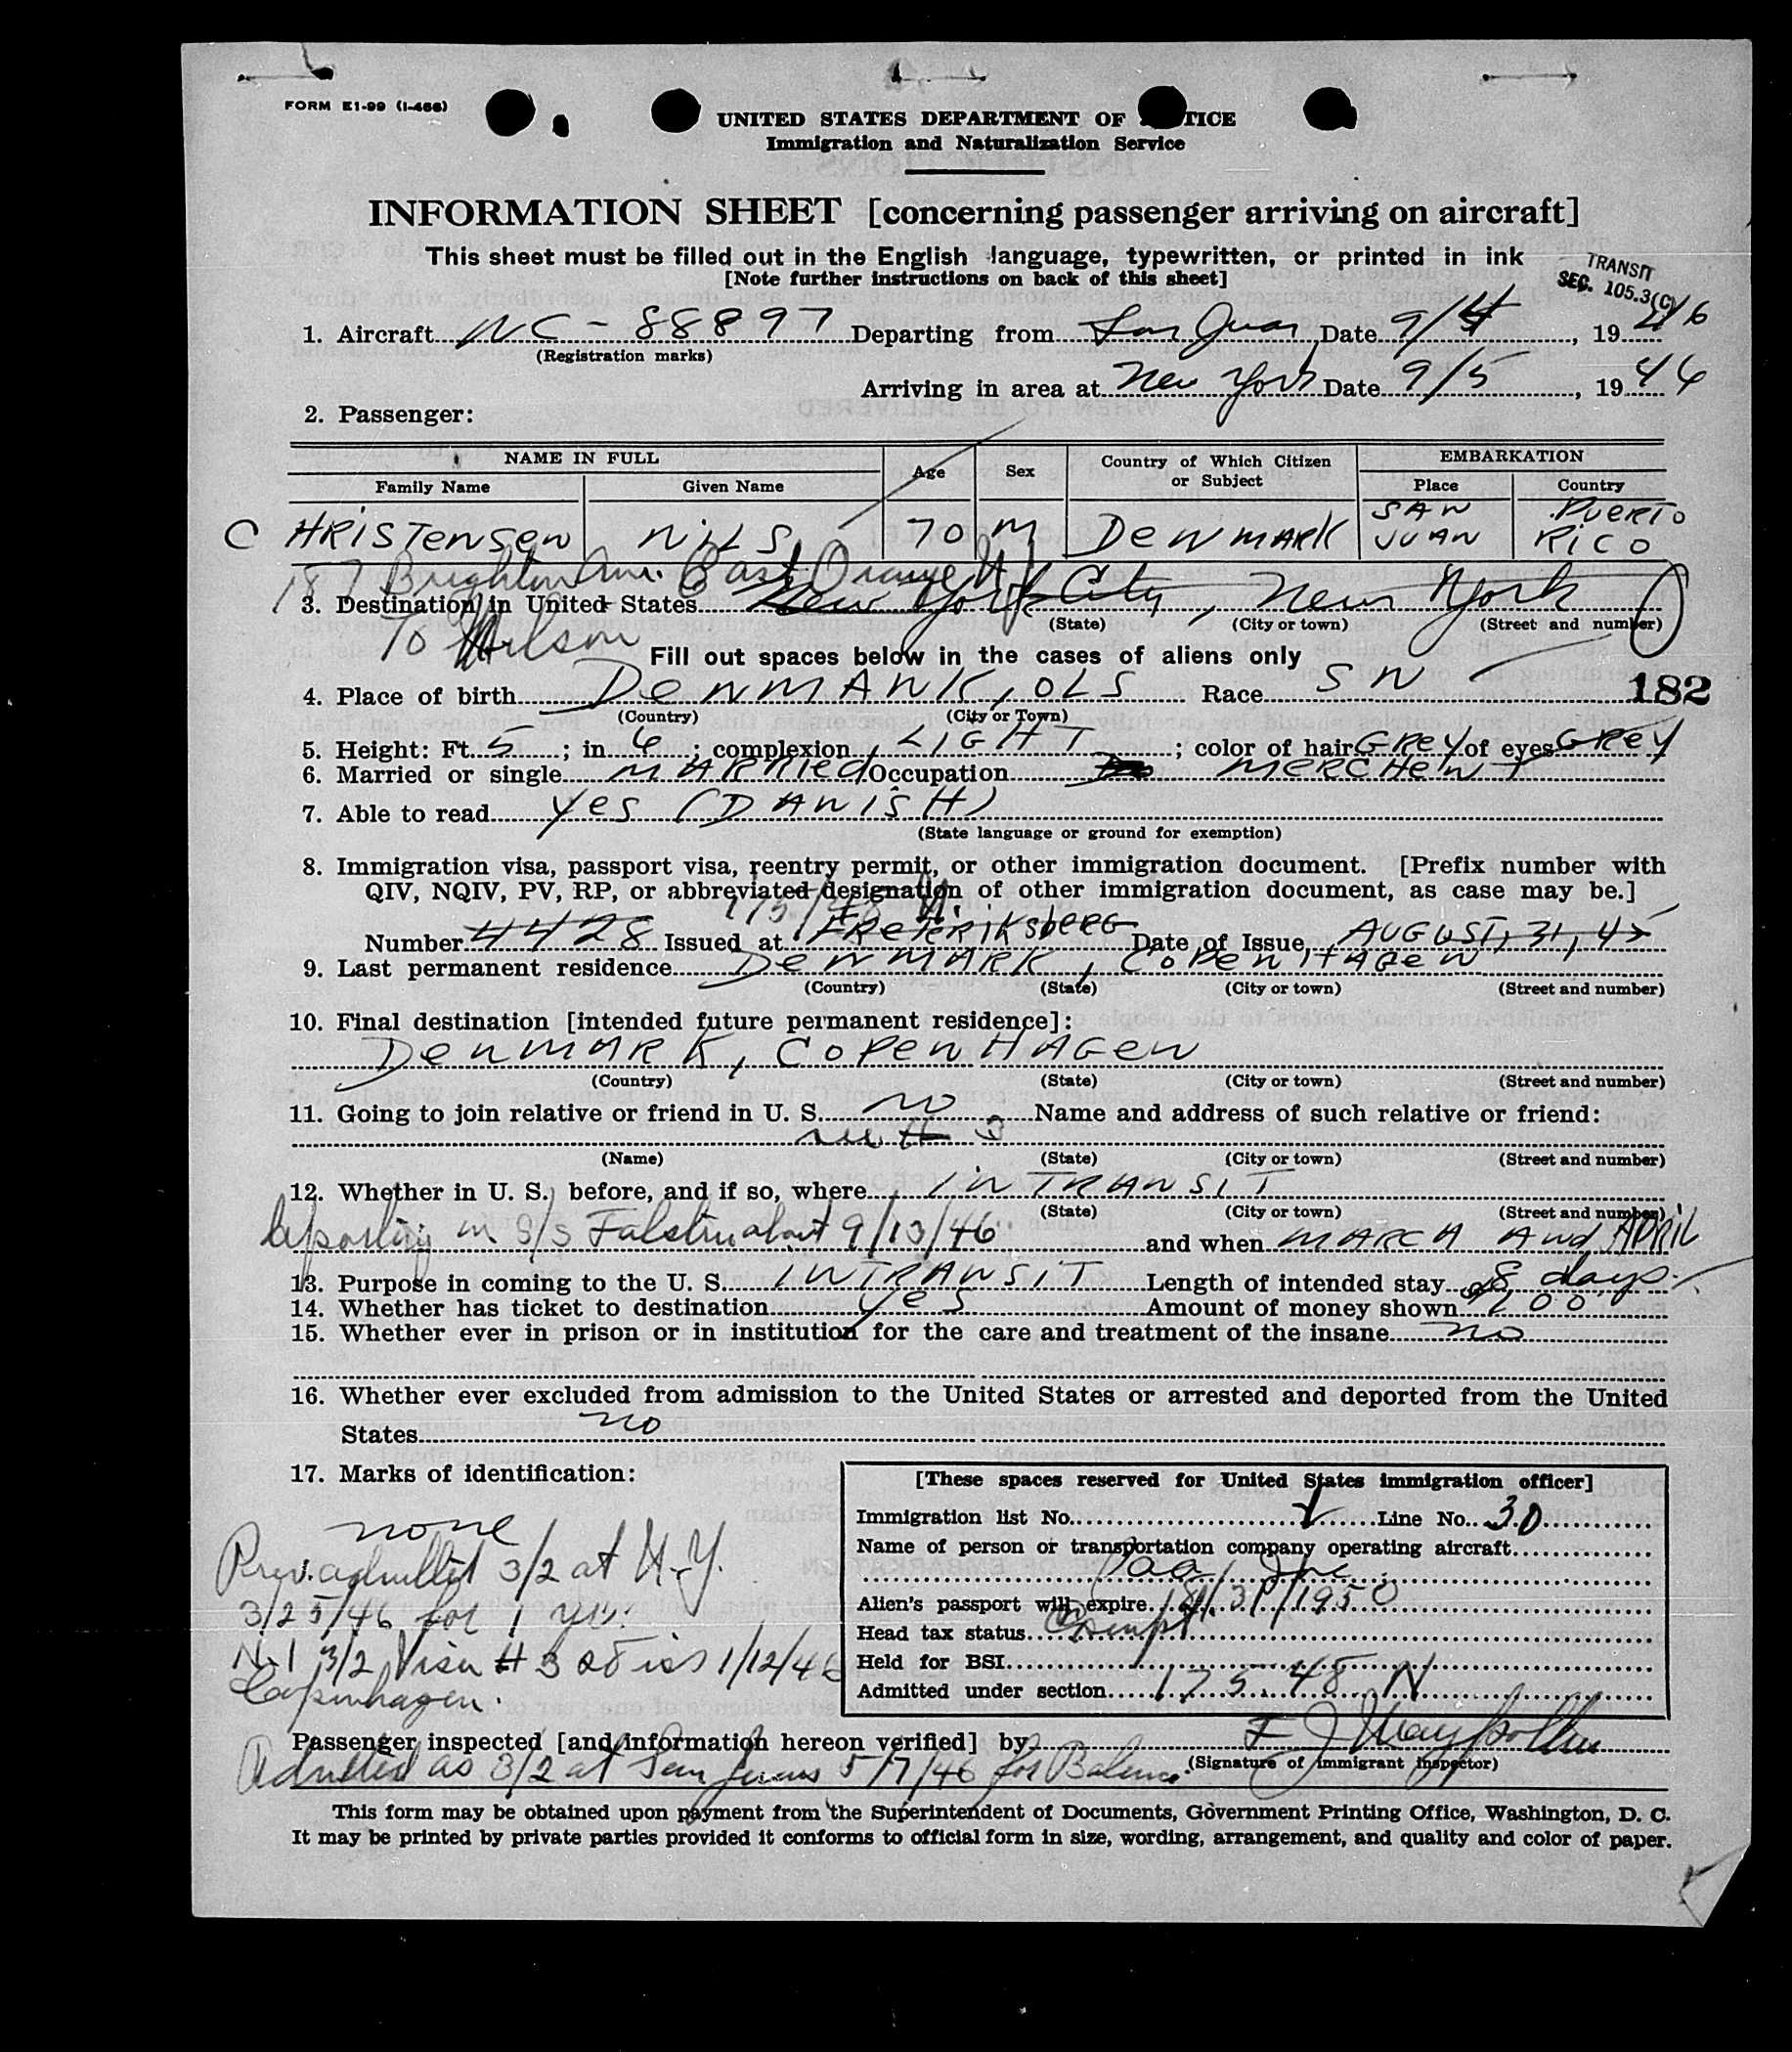 FORM E1-99 (I-466)
UNITED STATES DEPARTMENT OF TICE
Immigration and Naturalization Service
INFORMATION SHEET [concerning passenger arriving on aircraft]
This sheet must be filled out in the English language, typewritten, or printed in ink
[Note further instructions on back of this sheet]
TRANSIT
SEC. 105.3(C)
1. Aircraft NC-88897 Departing from San Juan Date 9/4, 1946
(Registration marks)
Arriving in area at New York Date 9/5, 1946
2. Passenger:
NAME IN FULL Age Sex Country of Which Citizen or Subject EMBARKATION
Family Name Given Name Place Country
CHRISTENSEN NILS 70 M DENMARK SAN JUAN PUERTO RICO
187 Brighton Ave. East Orange NJ
3. Destination in United States New York City, New York
(State) (City or town) (Street and number)
To Wilson
Fill out spaces below in the cases of aliens only
4. Place of birth DENMARK, OLS Race SN 182
(Country) (City or Town)
5. Height: Ft. 5; in 6; complexion LIGHT; color of hair GREY of eyes GREY
6. Married or single MARRIED Occupation MERCHENT
7. Able to read yes (DANISH)
(State language or ground for exemption)
8. Immigration visa, passport visa, reentry permit, or other immigration document. [Prefix number with
QIV, NQIV, PV, RP, or abbreviated designation of other immigration document, as case may be.]
175.48 N.
Number 4428 Issued at FReteRiksbeRG Date of Issue AUGUST, 31, 45
9. Last permanent residence DENMARK, COPENHAGEN
(Country) (State) (City or town) (Street and number)
10. Final destination [intended future permanent residence]:
DENMARK, COPENHAGEN
(Country) (State) (City or town) (Street and number)
11. Going to join relative or friend in U. S. no Name and address of such relative or friend:
3
(Name) (State) (City or town) (Street and number)
12. Whether in U. S. before, and if so, where IN TRANSIT
(State) (City or town) (Street and number)
Departing on S/S Falstria about 9/13/46 and when MARCH And APRIL
13. Purpose in coming to the U. S. IN TRANSIT Length of intended stay 8 days.
14. Whether has ticket to destination yes Amount of money shown 200
15. Whether ever in prison or in institution for the care and treatment of the insane no
16. Whether ever excluded from admission to the United States or arrested and deported from the United
States no
17. Marks of identification:
none
Prev. admitted 3/2 at N.Y.
3/25/46 for 1 yr.
N-1 3/2 Visa # 328 iss 1/12/46
Copenhagen.
[These spaces reserved for United States immigration officer]
Immigration list No. Line No. 30
Name of person or transportation company operating aircraft
Paa Inc
Alien's passport will expire 8/31/1950
Head tax status Exempt
Held for BSI
Admitted under section 175.48 N
Passenger inspected [and information hereon verified] by
(Signature of immigrant inspector)
Admitted as 3/2 at San Juan 5/7/46 for Balance.
This form may be obtained upon payment from the Superintendent of Documents, Government Printing Office, Washington, D. C.
It may be printed by private parties provided it conforms to official form in size, wording, arrangement, and quality and color of paper.